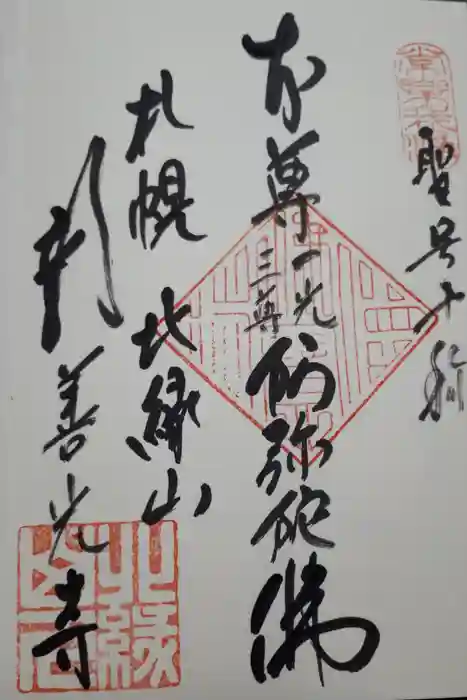 聖号十称
本尊一光三尊阿弥陀佛
札幌 北縁山
新善光寺
北縁山